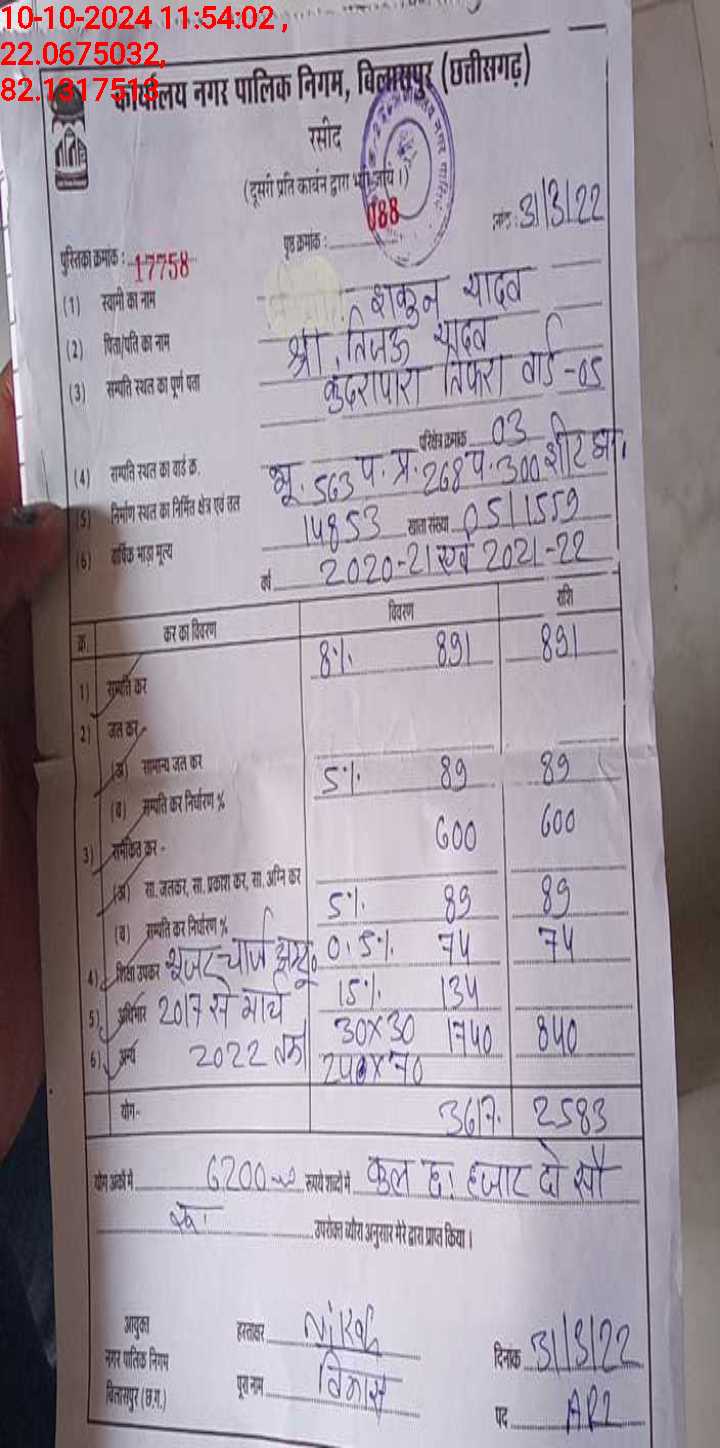 10-10-2024 11:54:02 ,
22.0675032,
82.1317513
कार्यालय नगर पालिक निगम, बिलासपुर (छत्तीसगढ़)
रसीद
(दूसरी प्रति कार्बन द्वारा भरी जाये।)
पुस्तिका क्रमांक : 17758 पृष्ठ क्रमांक : 088 31/3/22
(1) स्वामी का नाम शकुन यादव
(2) पिता/पति का नाम श्री तिजऊ यादव
(3) सम्पति स्थल का पूर्ण पता कुंदरापारा तिफरा वार्ड -05
(4) सम्पति स्थल का वार्ड क्र. परिक्षेत्र क्रमांक 03
(5) निर्माण स्थल का निर्मित क्षेत्र एवं तल भू. 563 प. प्र. 268 प. 300 शीट
(6) वार्षिक भाड़ा मूल्य 14853 खाता संख्या 05/1559
वर्ष 2020-21 एवं 2021-22
क्र. कर का विवरण विवरण राशि
1) सम्पति कर 8% 891 891
2) जल कर
(अ) सामान्य जल कर
(ब) सम्पति कर निर्धारण % 5% 89 89
3) समेकित कर - 600 600
(अ) सा. जलकर, सा. प्रकाश कर, सा. अग्नि कर
(ब) सम्पति कर निर्धारण % 5% 89 89
4) शिक्षा उपकर यूजर चार्ज 0.5% 74 74
5) अधिभार 2017 से मार्च 15% 134
6) अन्य 2022 तक 30x30 1740 840
240x70
योग- 3617. 2583
योग अंकों में 6200 रूपये शब्दों में कुल छः हजार दो सौ
रू.
उपरोक्त ब्योरा अनुसार मेरे द्वारा प्राप्त किया।
आयुक्त हस्ताक्षर
नगर पालिक निगम दिनांक 31/3/22
बिलासपुर (छ.ग.) पूरा नाम विकास
पद ARI